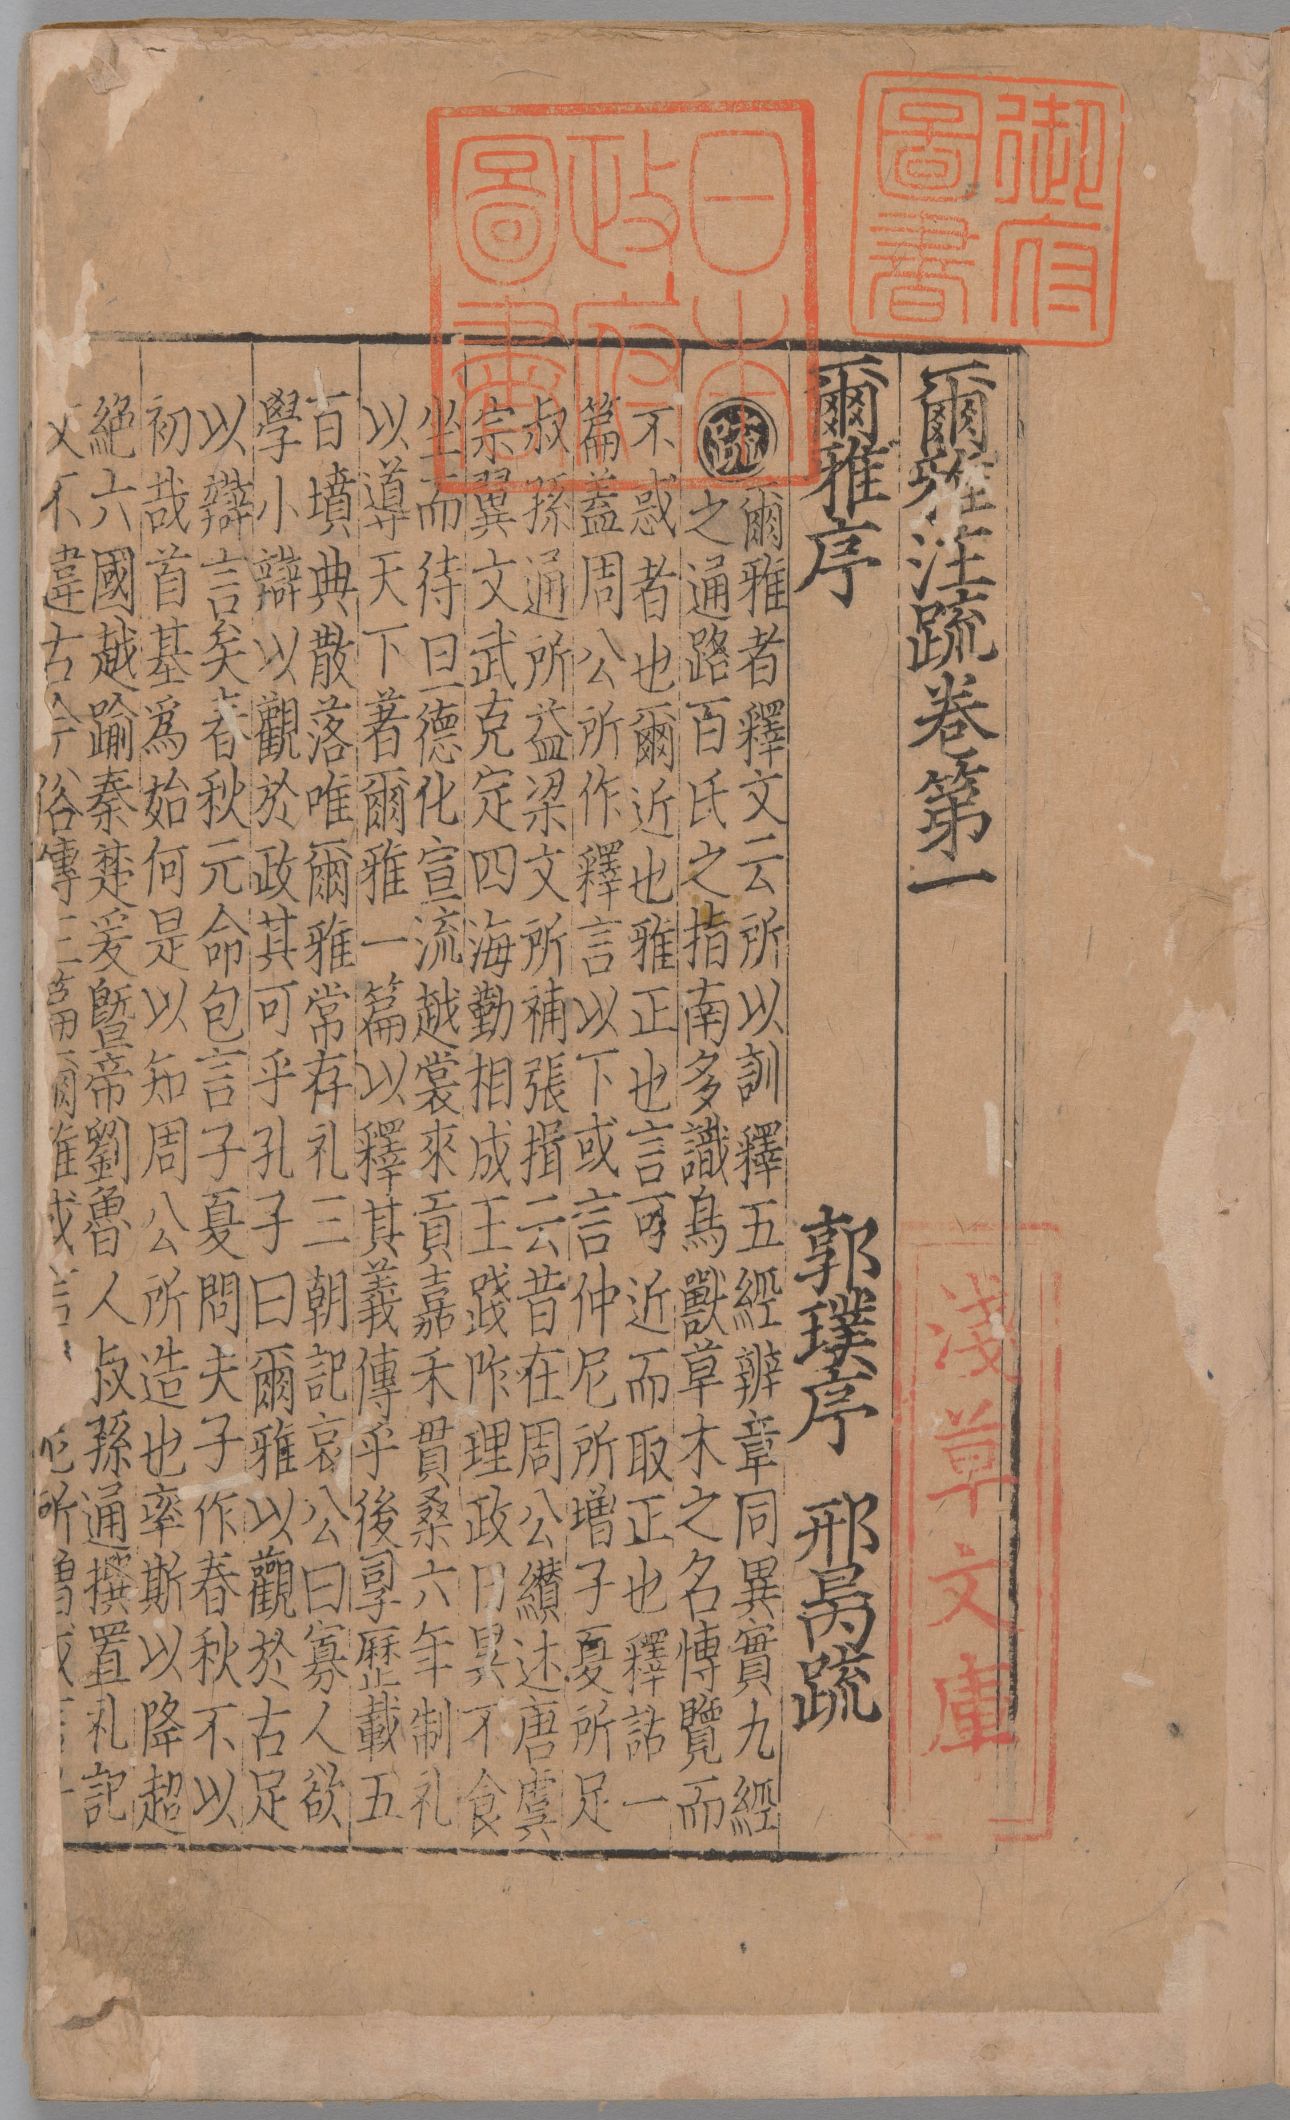 御府圖書
日本政府圖書
淺草文庫
爾雅注疏卷第一
爾雅序 郭璞序 邢昺疏
疏 爾雅者釋文云所以訓釋五經辨章同異實九經
之通路百氏之指南多識鳥獸草木之名博覽而
不惑者也爾近也雅正也言可近而取正也釋詁一
篇蓋周公所作釋言以下或言仲尼所增子夏所足
叔孫通所益梁文所補張揖云昔在周公纘述唐虞
宗翼文武克定四海勤相成王踐阼理政日昃不食
坐而待旦德化宣流越裳來貢嘉禾貫桑六年制礼
以導天下著爾雅一篇以釋其義傳乎後孠歷載五
百墳典散落唯爾雅常存礼三朝記哀公曰寡人欲
學小辯以觀於政其可乎孔子曰爾雅以觀於古足
以辯言矣春秋元命包言子夏問夫子作春秋不以
初哉首基爲始何是以知周公所造也率斯以降超
絕六國越踰秦楚爰曁帝劉魯人叔孫通撰置礼記
文不違古今俗傳三篇爾雅或言 尼所增或言